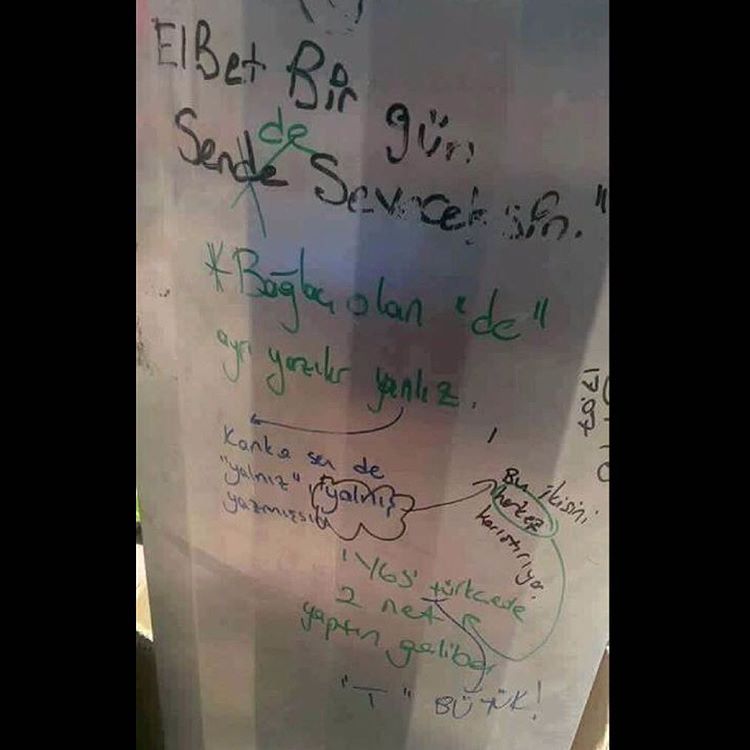 ElBet Bir gün
de
Sende Seveceksin."
*Bağlaç olan "de"
ayrı yazılır yanlız.
Kanka sen de
"yalnız" ı "yalnış"
yazmışsın
Bu ikisini
herkez
karıştırıyo.
YGS türkcede
2 net
yaptın galiba
"T" BÜYÜK!